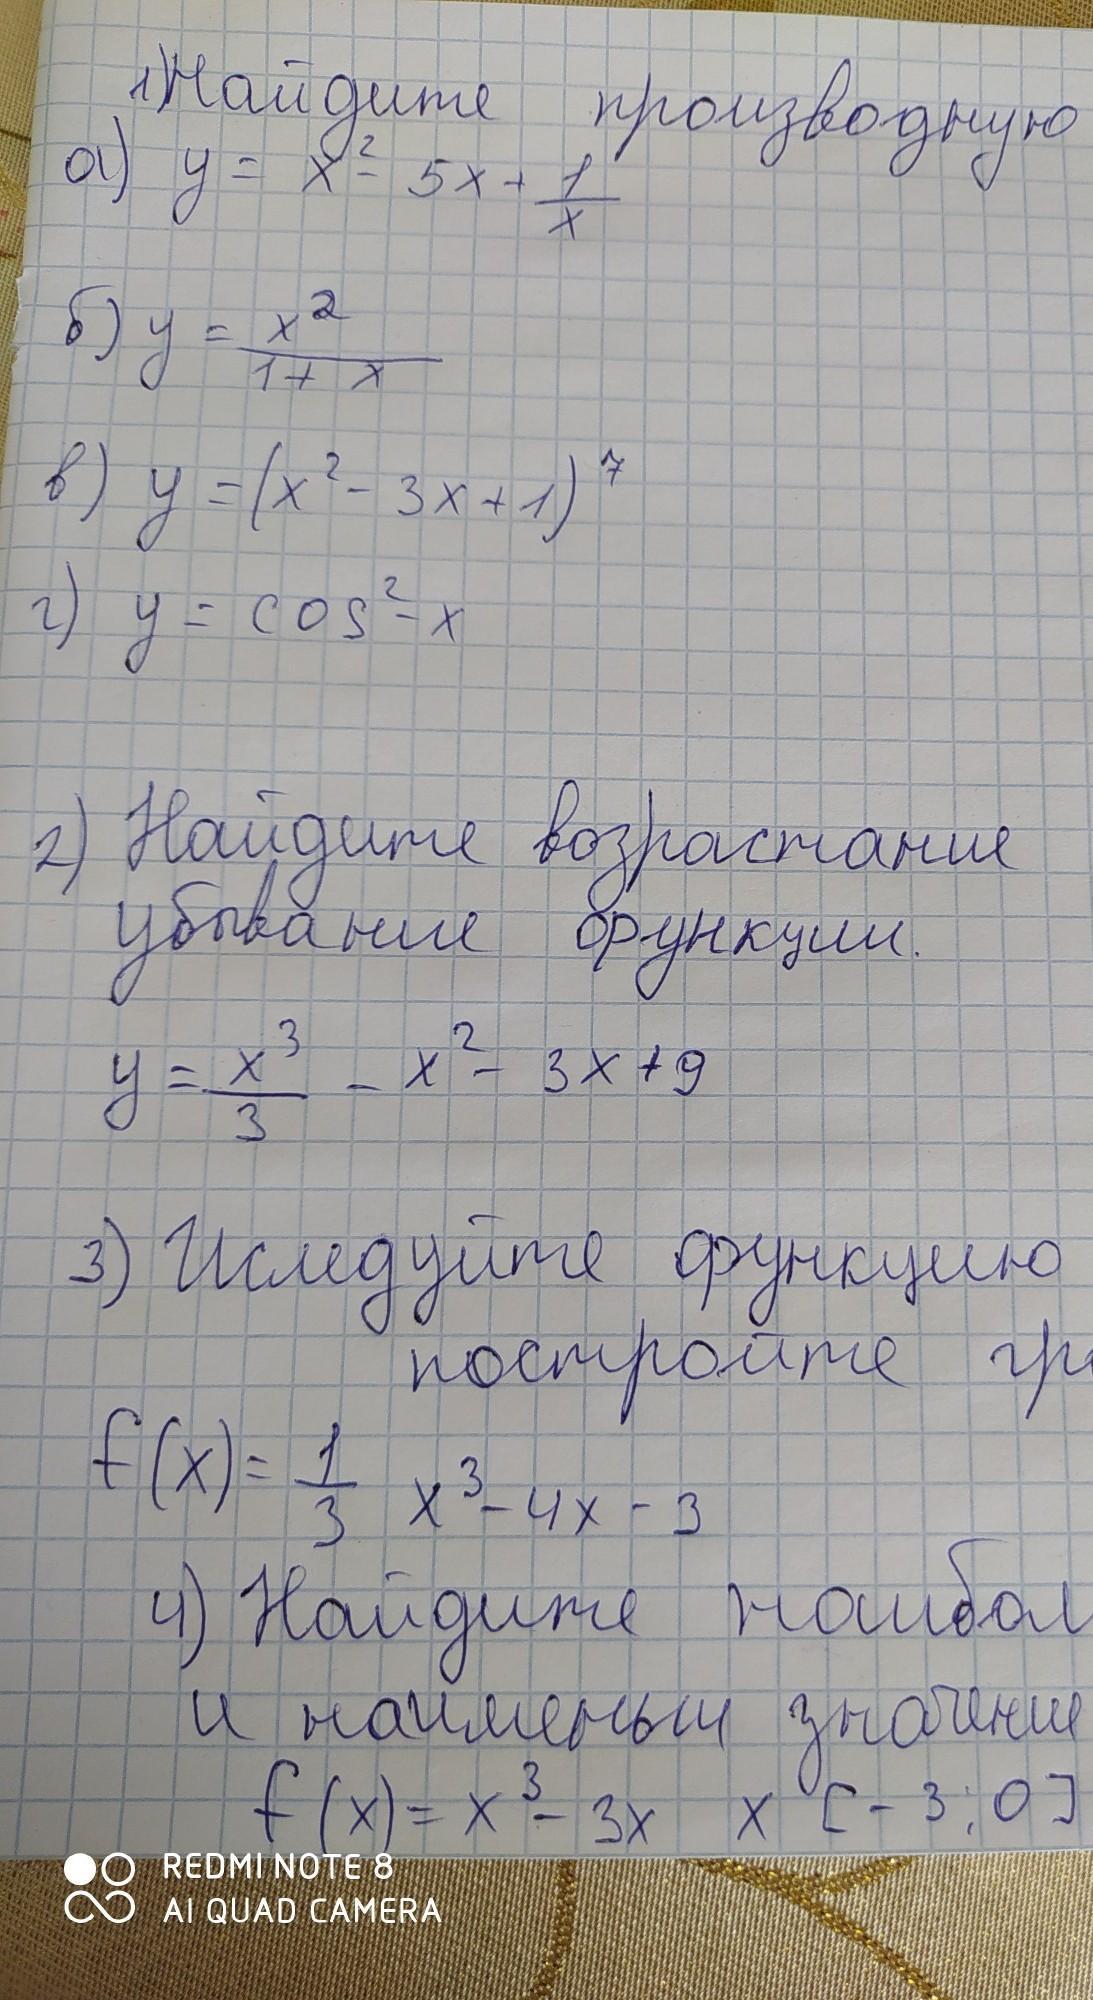 1) Найдите производную
а) y = x² - 5x + 1/x
б) y = x²/(1 + x)
в) y = (x² - 3x + 1)⁷
г) y = cos² - x
2) Найдите возрастание
убывание функции.
y = x³/3 - x² - 3x + 9
3) Иследуйте функцию
постройте гра
f(x) = 1/3 x³ - 4x - 3
4) Найдите наибол
и наименьш значение
f(x) = x³ - 3x x [-3; 0]
REDMI NOTE 8
AI QUAD CAMERA